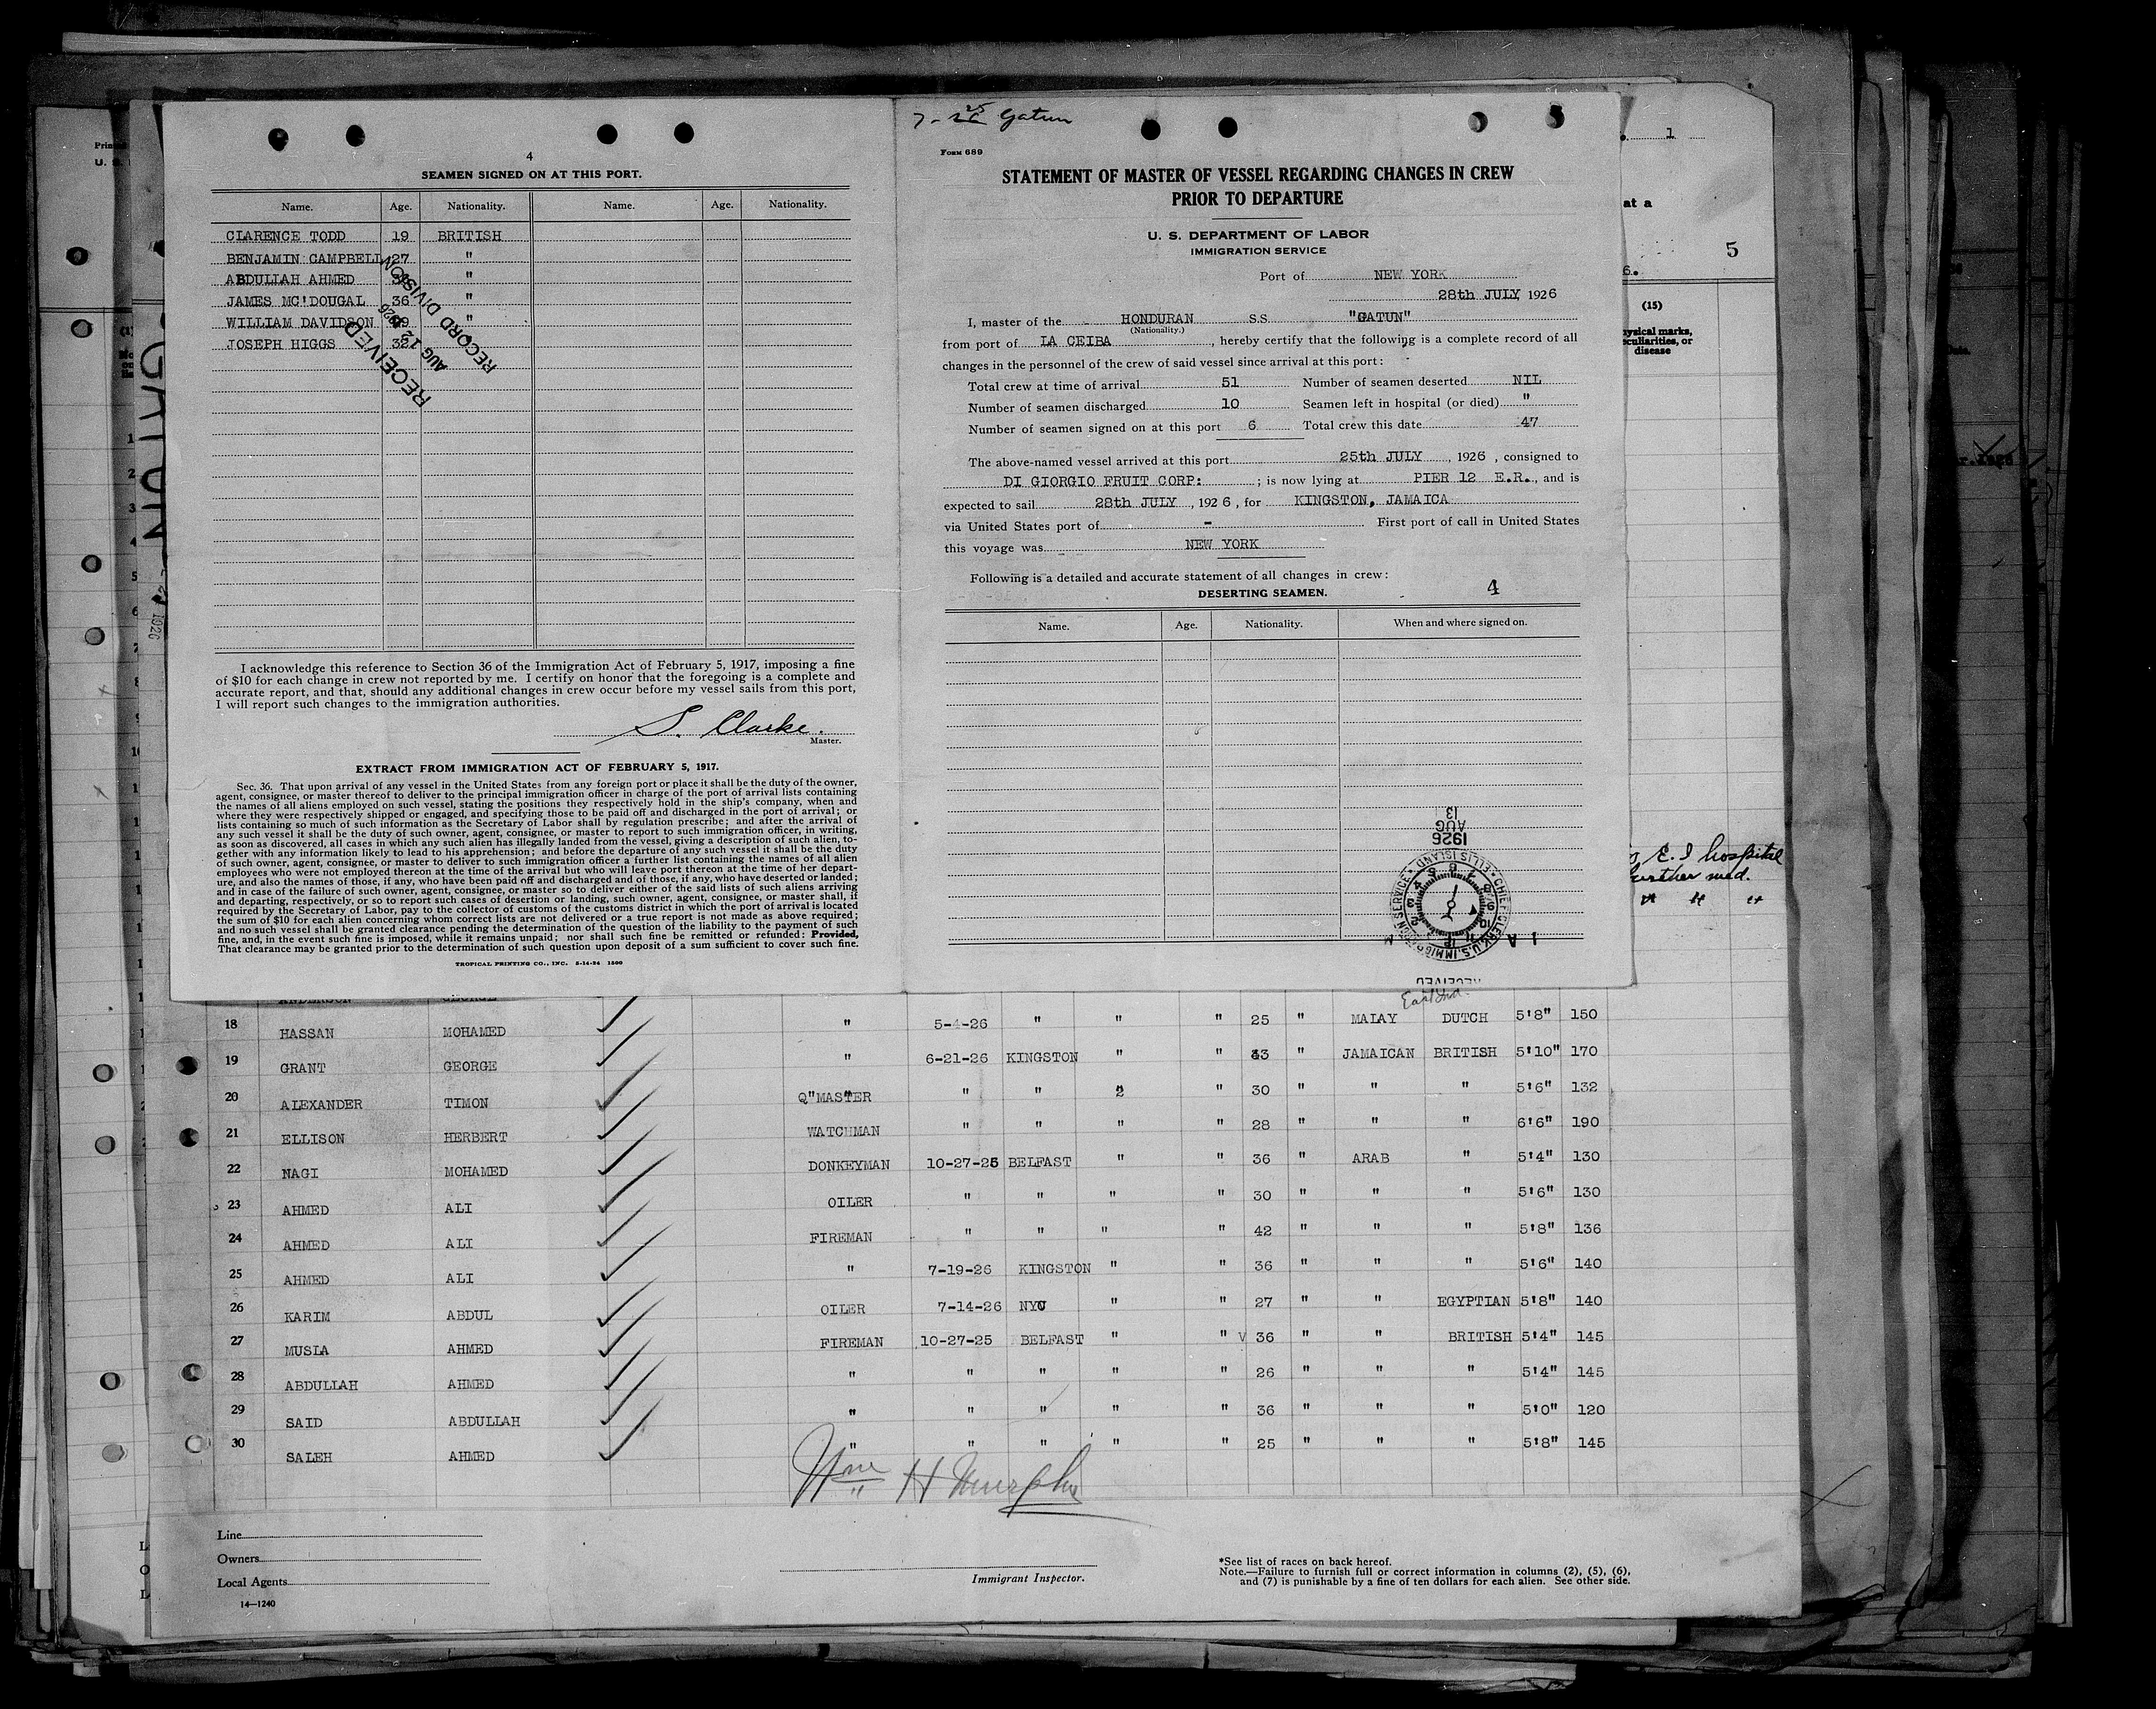 4
SEAMEN SIGNED ON AT THIS PORT.
Name. Age. Nationality. Name. Age. Nationality.
CLARENCE TODD 19 BRITISH
BENJAMIN CAMPBELL 27 "
ABDULLAH AHMED "
JAMES MC'DOUGAL 36 "
WILLIAM DAVIDSON "
JOSEPH HIGGS
RECEIVED
AUG 12 1926
RECORD DIVISION
I acknowledge this reference to Section 36 of the Immigration Act of February 5, 1917, imposing a fine
of $10 for each change in crew not reported by me. I certify on honor that the foregoing is a complete and
accurate report, and that, should any additional changes in crew occur before my vessel sails from this port,
I will report such changes to the immigration authorities.
S. Clarke.
Master.
EXTRACT FROM IMMIGRATION ACT OF FEBRUARY 5, 1917.
Sec. 36. That upon arrival of any vessel in the United States from any foreign port or place it shall be the duty of the owner,
agent, consignee, or master thereof to deliver to the principal immigration officer in charge of the port of arrival lists containing
the names of all aliens employed on such vessel, stating the positions they respectively hold in the ship's company, when and
where they were respectively shipped or engaged, and specifying those to be paid off and discharged in the port of arrival; or
lists containing so much of such information as the Secretary of Labor shall by regulation prescribe; and after the arrival of
any such vessel it shall be the duty of such owner, agent, consignee, or master to report to such immigration officer, in writing,
as soon as discovered, all cases in which any such alien has illegally landed from the vessel, giving a description of such alien, to-
gether with any information likely to lead to his apprehension; and before the departure of any such vessel it shall be the duty
of such owner, agent, consignee, or master to deliver to such immigration officer a further list containing the names of all alien
employees who were not employed thereon at the time of the arrival but who will leave port thereon at the time of her depart-
ure, and also the names of those, if any, who have been paid off and discharged and of those, if any, who have deserted or landed;
and in case of the failure of such owner, agent, consignee, or master so to deliver either of the said lists of such aliens arriving
and departing, respectively, or so to report such cases of desertion or landing, such owner, agent, consignee, or master shall, if
required by the Secretary of Labor, pay to the collector of customs of the customs district in which the port of arrival is located
the sum of $10 for each alien concerning whom correct lists are not delivered or a true report is not made as above required;
and no such vessel shall be granted clearance pending the determination of the question of the liability to the payment of such
fine, and, in the event such fine is imposed, while it remains unpaid; nor shall such fine be remitted or refunded: Provided,
That clearance may be granted prior to the determination of such question upon deposit of a sum sufficient to cover such fine.
TROPICAL PRINTING CO., INC. 5-14-24 1500
7-25 Gatun
FORM 689
STATEMENT OF MASTER OF VESSEL REGARDING CHANGES IN CREW
PRIOR TO DEPARTURE
U. S. DEPARTMENT OF LABOR
IMMIGRATION SERVICE
Port of NEW YORK
28th JULY 1926
I, master of the HONDURAN SS "GATUN"
(Nationality.)
from port of LA CEIBA, hereby certify that the following is a complete record of all
changes in the personnel of the crew of said vessel since arrival at this port:
Total crew at time of arrival 51 Number of seamen deserted NIL
Number of seamen discharged 10 Seamen left in hospital (or died) "
Number of seamen signed on at this port 6 Total crew this date 47
The above-named vessel arrived at this port 25th JULY, 1926, consigned to
DI GIORGIO FRUIT CORP: ; is now lying at PIER 12 E.R., and is
expected to sail 28th JULY, 1926, for KINGSTON, JAMAICA
via United States port of - First port of call in United States
this voyage was NEW YORK
Following is a detailed and accurate statement of all changes in crew:
DESERTING SEAMEN. 4
Name. Age. Nationality. When and where signed on.
1926
AUG
13
CHIEF CLERK, U.S. IMMIGRATION SERVICE ELLIS ISLAND
RECEIVED
1
at a
5
6.
(15)
disease
E. I hospital
further med.
" " "
GATUN
1926
ANDERSON GEORGE
East Ind.
18 HASSAN MOHAMED " 5-4-26 " " " 25 " MALAY DUTCH 5'8" 150
19 GRANT GEORGE " 6-21-26 KINGSTON " " 43 " JAMAICAN BRITISH 5'10" 170
20 ALEXANDER TIMON Q"MASTER " " 2 " 30 " " " 5'6" 132
21 ELLISON HERBERT WATCHMAN " " " " 28 " " " 6'6" 190
22 NAGI MOHAMED DONKEYMAN 10-27-25 BELFAST " " 36 " ARAB " 5'4" 130
23 AHMED ALI OILER " " " " 30 " " " 5'6" 130
24 AHMED ALI FIREMAN " " " " 42 " " " 5'8" 136
25 AHMED ALI " 7-19-26 KINGSTON " " 36 " " " 5'6" 140
26 KARIM ABDUL OILER 7-14-26 NYC " " 27 " " EGYPTIAN 5'8" 140
27 MUSLA AHMED FIREMAN 10-27-25 BELFAST " " V 36 " " BRITISH 5'4" 145
28 ABDULLAH AHMED " " " " " 26 " " " 5'4" 145
29 SAID ABDULLAH " " " " " 36 " " " 5'0" 120
30 SALEH AHMED " " " " " 25 " " " 5'8" 145
Wm H Murphy
Line
Owners
Local Agents
14—1240
Immigrant Inspector.
*See list of races on back hereof.
Note.—Failure to furnish full or correct information in columns (2), (5), (6),
and (7) is punishable by a fine of ten dollars for each alien. See other side.